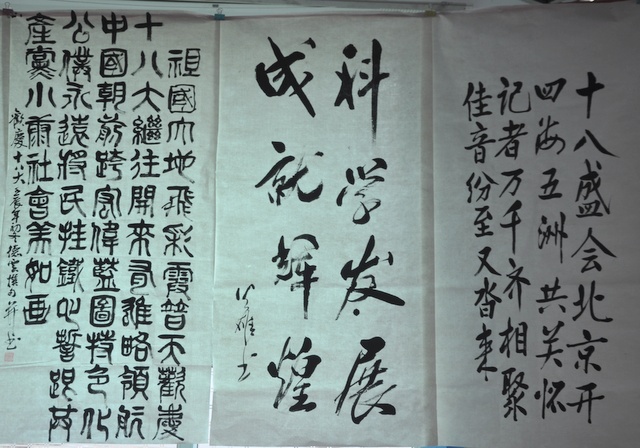 十八盛会北京开
四海五洲共关怀
记者万千齐相聚
佳音纷至又沓来
科学发展
成就辉煌
祖國大地飛彩霞普天歡慶
十八大繼往開來有雄略領航
中國朝前跨宏偉藍圖特色化
公僕永遠將民挂鐵心誓跟共
產黨小康社會美如画
歡慶十八大壬辰年初冬德雲撰句并书